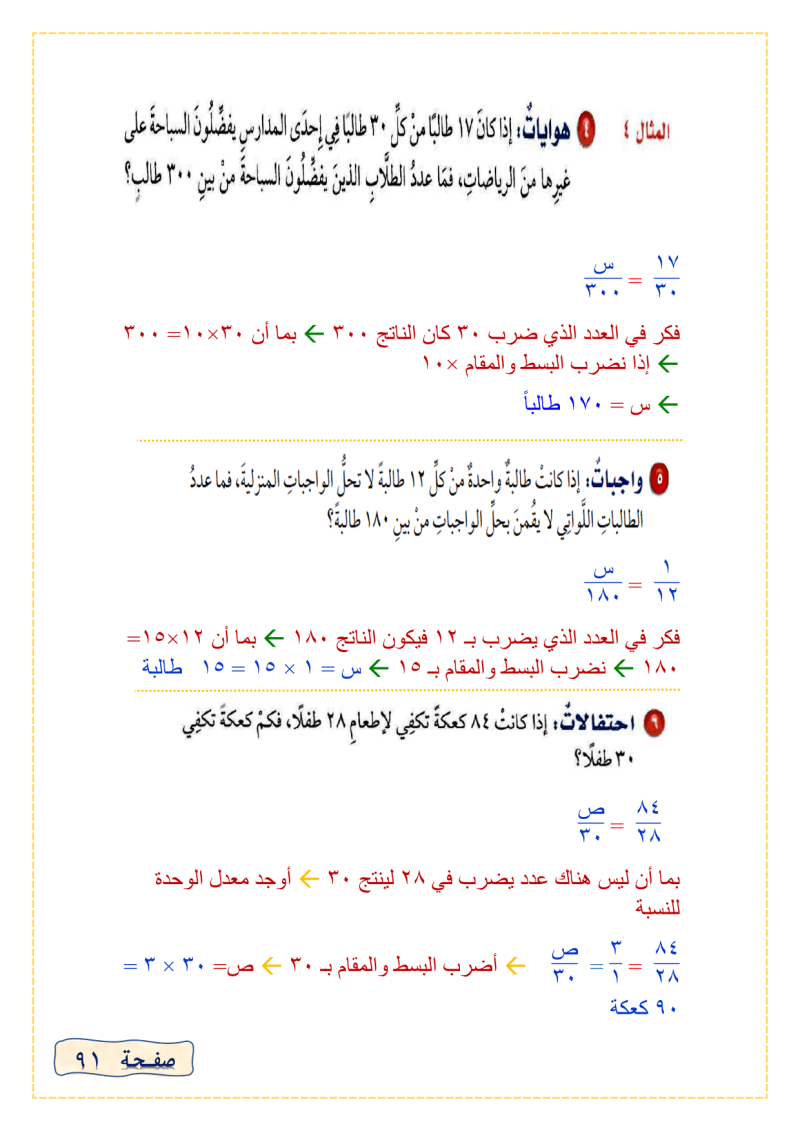 المثال ٤ ٤ هواياتٌ: إذا كانَ ١٧ طالبًا منْ كلِّ ٣٠ طالبًا فِي إحدَى المدارسِ يفضِّلُونَ السباحةَ على
غيرِها منَ الرياضاتِ، فمَا عددُ الطلَّابِ الذينَ يفضِّلُونَ السباحةَ منْ بينِ ٣٠٠ طالبٍ؟
١٧/٣٠ = س/٣٠٠
فكر في العدد الذي ضرب ٣٠ كان الناتج ٣٠٠ ← بما أن ٣٠×١٠= ٣٠٠
← إذا نضرب البسط والمقام ×١٠
← س = ١٧٠ طالباً
٥ واجباتٌ: إذا كانتْ طالبةٌ واحدةٌ منْ كلِّ ١٢ طالبةً لا تحلُّ الواجباتِ المنزليةَ، فما عددُ
الطالباتِ اللَّواتِي لا يقُمنَ بحلِّ الواجباتِ منْ بينِ ١٨٠ طالبةً؟
١/١٢ = س/١٨٠
فكر في العدد الذي يضرب بـ ١٢ فيكون الناتج ١٨٠ ← بما أن ١٢×١٥=
١٨٠ ← نضرب البسط والمقام بـ ١٥ ← س = ١ × ١٥ = ١٥ طالبة
٦ احتفالاتٌ: إذا كانتْ ٨٤ كعكةً تكفِي لإطعامِ ٢٨ طفلًا، فكمْ كعكةً تكفِي
٣٠ طفلًا؟
٨٤/٢٨ = ص/٣٠
بما أن ليس هناك عدد يضرب في ٢٨ لينتج ٣٠ ← أوجد معدل الوحدة
للنسبة
٨٤/٢٨ = ٣/١ = ص/٣٠ ← أضرب البسط والمقام بـ ٣٠ ← ص= ٣٠ × ٣ =
٩٠ كعكة
صفحة ٩١